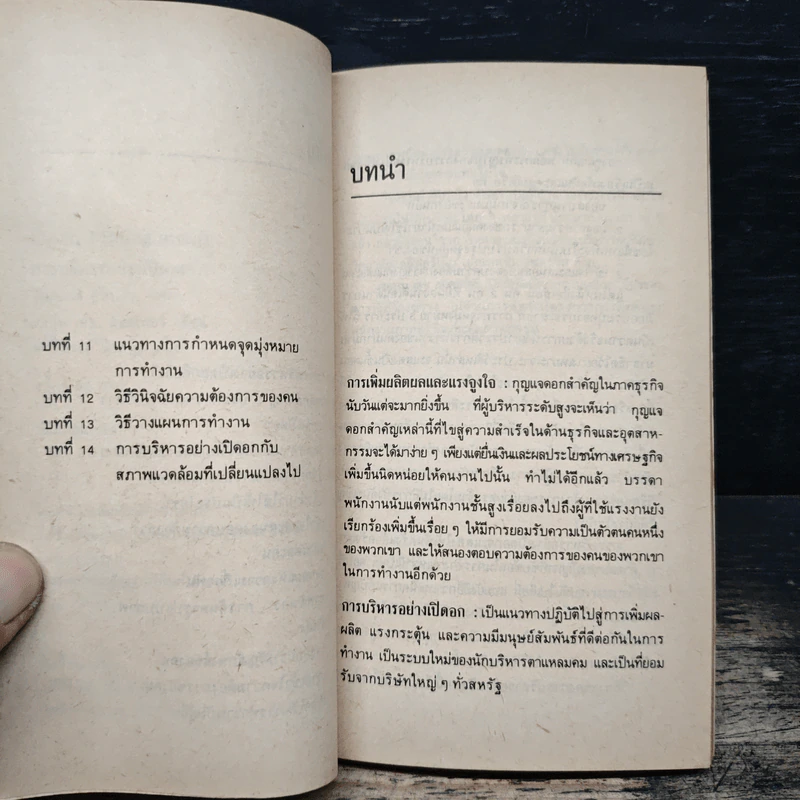 บทที่ 11 แนวทางการกำหนดจุดมุ่งหมาย
การทำงาน
บทที่ 12 วิธีวินิจฉัยความต้องการของคน
บทที่ 13 วิธีวางแผนการทำงาน
บทที่ 14 การบริหารอย่างเปิดอกกับ
สภาพแวดล้อมที่เปลี่ยนแปลงไป
บทนำ
การเพิ่มผลิตผลและแรงจูงใจ : กุญแจดอกสำคัญในภาคธุรกิจ
นับวันแต่จะมากยิ่งขึ้น ที่ผู้บริหารระดับสูงจะเห็นว่า กุญแจ
ดอกสำคัญเหล่านี้ที่ไขสู่ความสำเร็จในด้านธุรกิจและอุตสาห-
กรรมจะได้มาง่าย ๆ เพียงแต่ยื่นเงินและผลประโยชน์ทางเศรษฐกิจ
เพิ่มขึ้นนิดหน่อยให้คนงานไปนั้น ทำไม่ได้อีกแล้ว บรรดา
พนักงานนับแต่พนักงานชั้นสูงเรื่อยลงไปถึงผู้ที่ใช้แรงงานยัง
เรียกร้องเพิ่มขึ้นเรื่อย ๆ ให้มีการยอมรับความเป็นตัวตนคนหนึ่ง
ของพวกเขา และให้สนองตอบความต้องการของคนของพวกเขา
ในการทำงานอีกด้วย
การบริหารอย่างเปิดอก : เป็นแนวทางปฏิบัติไปสู่การเพิ่มผล-
ผลิต แรงกระตุ้น และความมีมนุษย์สัมพันธ์ที่ดีต่อกันในการ
ทำงาน เป็นระบบใหม่ของนักบริหารตาแหลมคม และเป็นที่ยอม
รับจากบริษัทใหญ่ ๆ ทั่วสหรัฐ